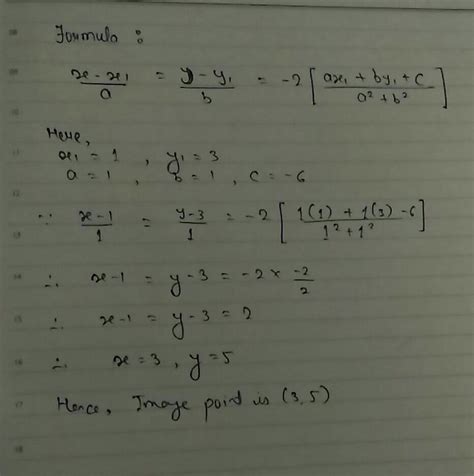 Formula :
(x - x₁)/a = (y - y₁)/b = -2 [(ax₁ + by₁ + c)/(a² + b²)]
Here,
x₁ = 1 , y₁ = 3
a = 1 , b = 1 , c = -6
∵ (x - 1)/1 = (y - 3)/1 = -2 [(1(1) + 1(3) - 6)/(1² + 1²)]
∴ x - 1 = y - 3 = -2 × (-2)/2
∴ x - 1 = y - 3 = 2
∴ x = 3 , y = 5
Hence, Image point is (3, 5)